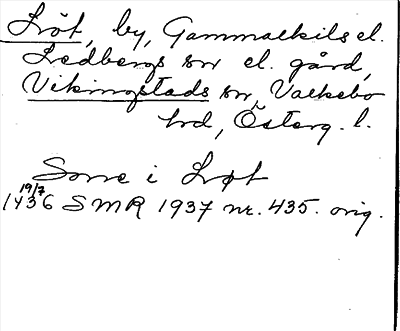 Lröt, by, Gammalkils el.
Ledbergs sn el. gård,
Vikingstads sn, Valkebo
hd, Österg. l.
Sone i Lrøt
19/7
1436 SMR 1937 nr. 435. orig.